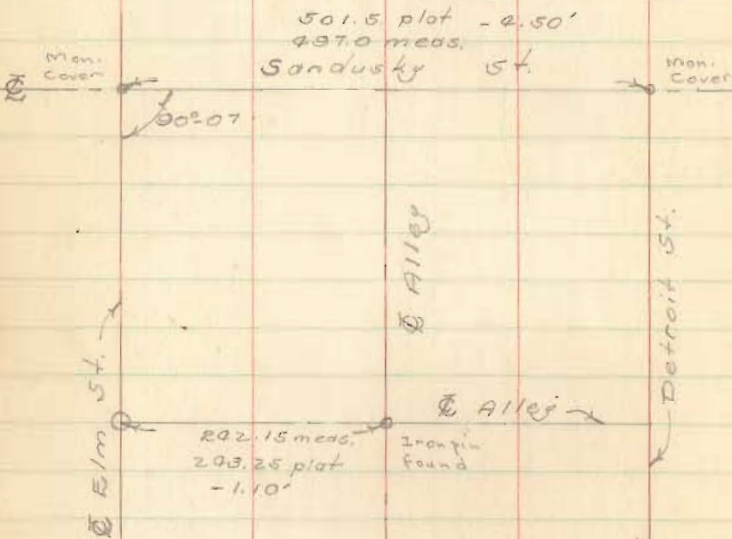 501.5 plat - 4.50'
497.0 meas.
Sandusky St.
Mon. Cover
℄
Mon. Cover
90°-07
℄ Alley
Detroit St.
℄ Elm St.
℄ Alley
242.15 meas.
243.25 plat
-1.10'
Iron pin
found